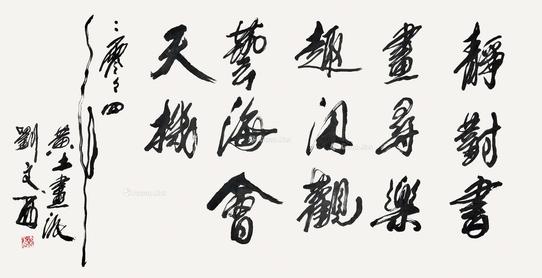 靜對書
畫尋樂
趣閑觀
藝海會
天機
二零零四
黃土畫派
劉文西